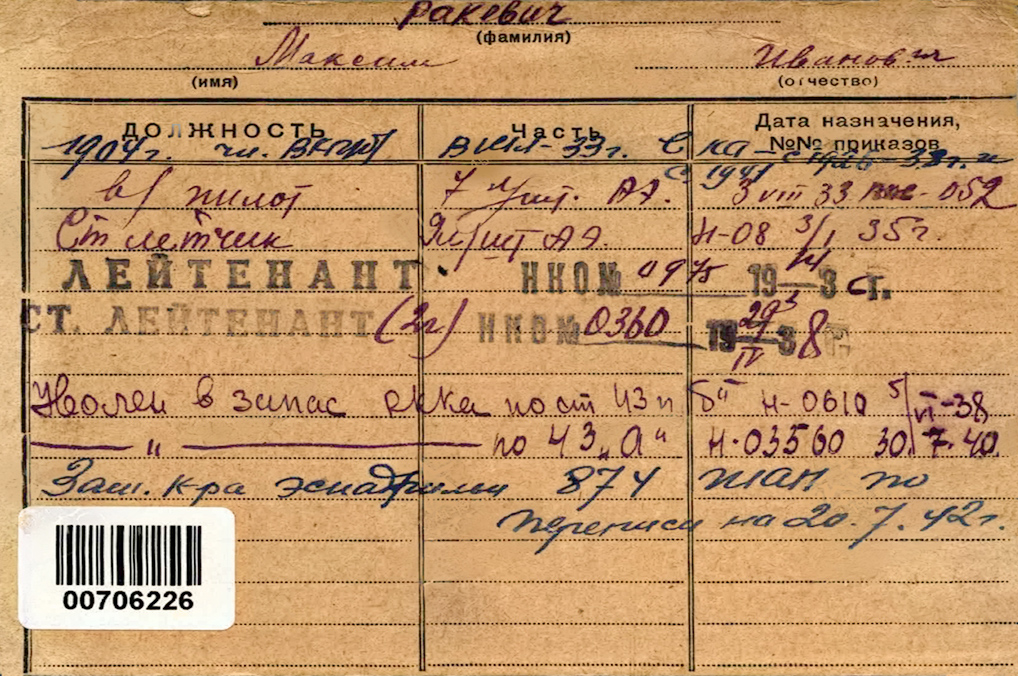 Ракевич
(фамилия)
Максим Иванович
(имя) (отчество)
ДОЛЖНОСТЬ Часть Дата назначения, №№ приказов
1904г. чл. ВКП(б) ВКП-33г. в КА с 1926-38г. и
с 1941
в/ пилот 7 АЭ. 3 VIII 33 052
Ст летчик АЭ. Н-08 3/I 35г.
ЛЕЙТЕНАНТ НКО № 0975 19 3 г.
СТ. ЛЕЙТЕНАНТ (2г) НКО № 0360 19 29/IV 38
Уволен в запас РККА по ст 43 п "б" Н-0610 5/VI-38
— " — по 43 "а" Н-03560 30.7.40
Зам. к-ра эскадрильи 874 ШАП по
переписи на 20.7.42г.
00706226